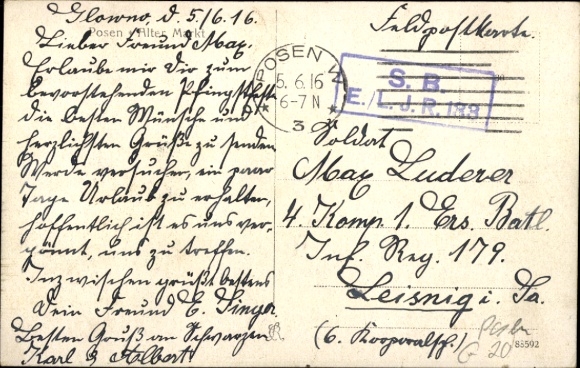 Glowno, d. 5./6.16.
Posen Alter Markt
Lieber Freund Max.
Erlaube mir Dir zum
bevorstehenden Pfingstfeste
die besten Wünsche und
herzlichsten Grüße zu senden
Werde versuchen, ein paar
Tage Urlaub zu erhalten,
hoffentlich ist es uns ver-
gönnt, uns zu treffen.
Inzwischen grüßt bestens
Dein Freund E. Singer
Besten Gruß an Schwarzen
Karl & Albert
Feldpostkarte.
POSEN W
5.6.16
6-7 N
* 3 *
S. B.
E./L. J. R. 133
Soldat
Max Luderer
4. Komp. 1. Ers. Batl.
Inf. Reg. 179.
Leisnig i. Sa.
(6. Korporalsch.)
Posen
G 20
88502